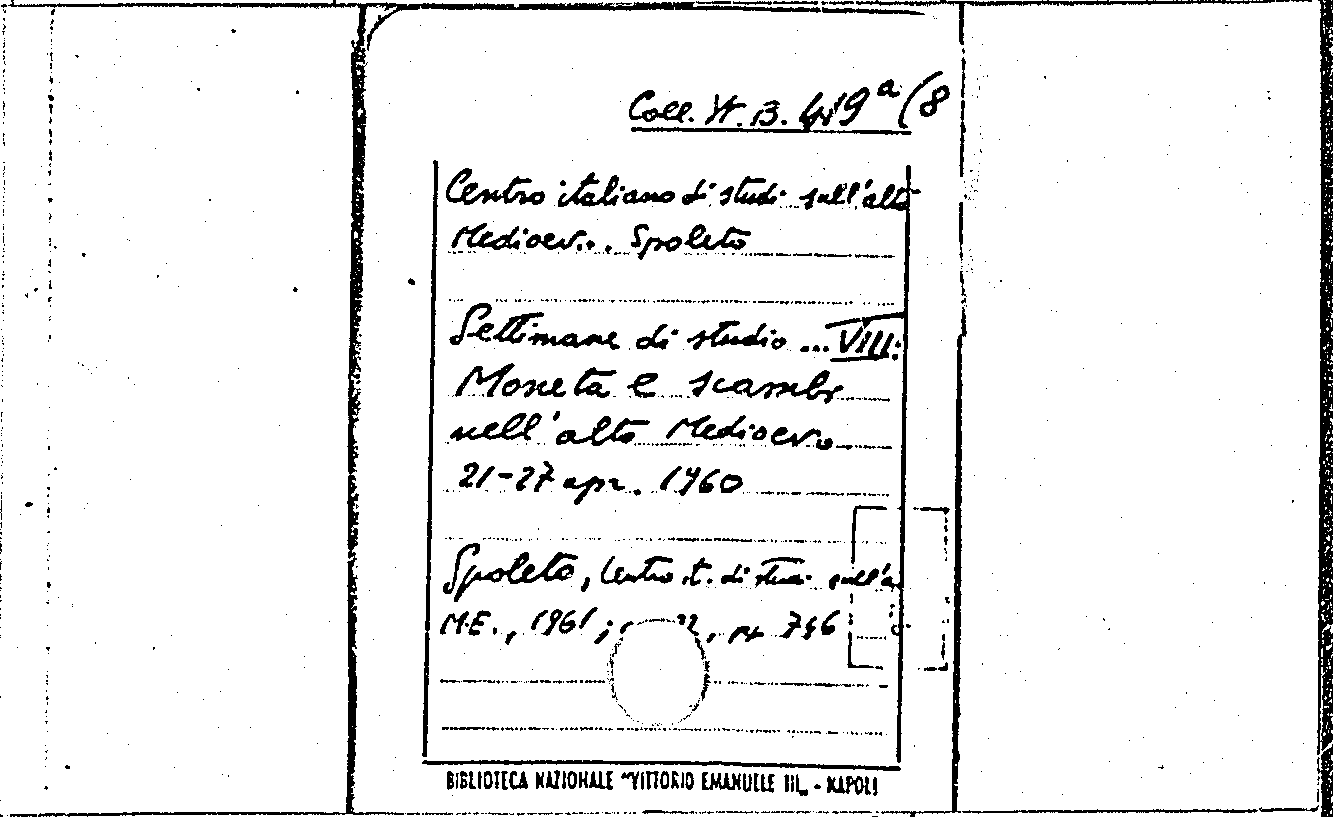 Coll. It. B. 419ª (8
Centro italiano di studi sull'alto
Medioevo. Spoleto
Settimane di studio ... VIII:
Moneta e scambi
nell'alto Medioevo
21-27 apr. 1960
Spoleto, Centro it. di studi sull'a.
M.E., 1961;
BIBLIOTECA NAZIONALE "VITTORIO EMANUELE III„ - NAPOLI